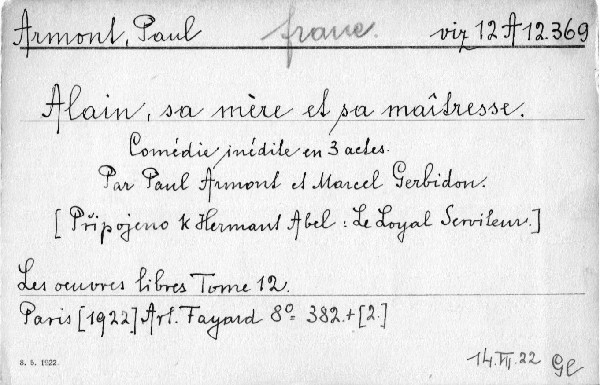 Armont, Paul franc. viz 12 A 12.369
Alain, sa mère et sa maîtresse.
Comédie inédite en 3 actes.
Par Paul Armont et Marcel Gerbidon.
[Připojeno k Hermant Abel: Le Loyal Serviteur.]
Les oeuvres libres Tome 12.
Paris [1922] Art. Fayard 8º 382.+[2.]
8. 5. 1922.
14.VII.22 Gl